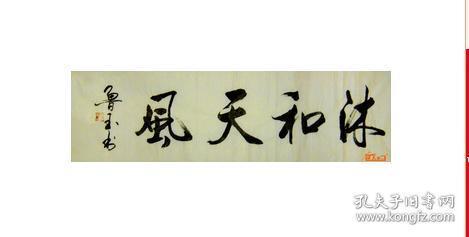 沐和天風
魯玉书
孔夫子旧书网
www.kongfz.com